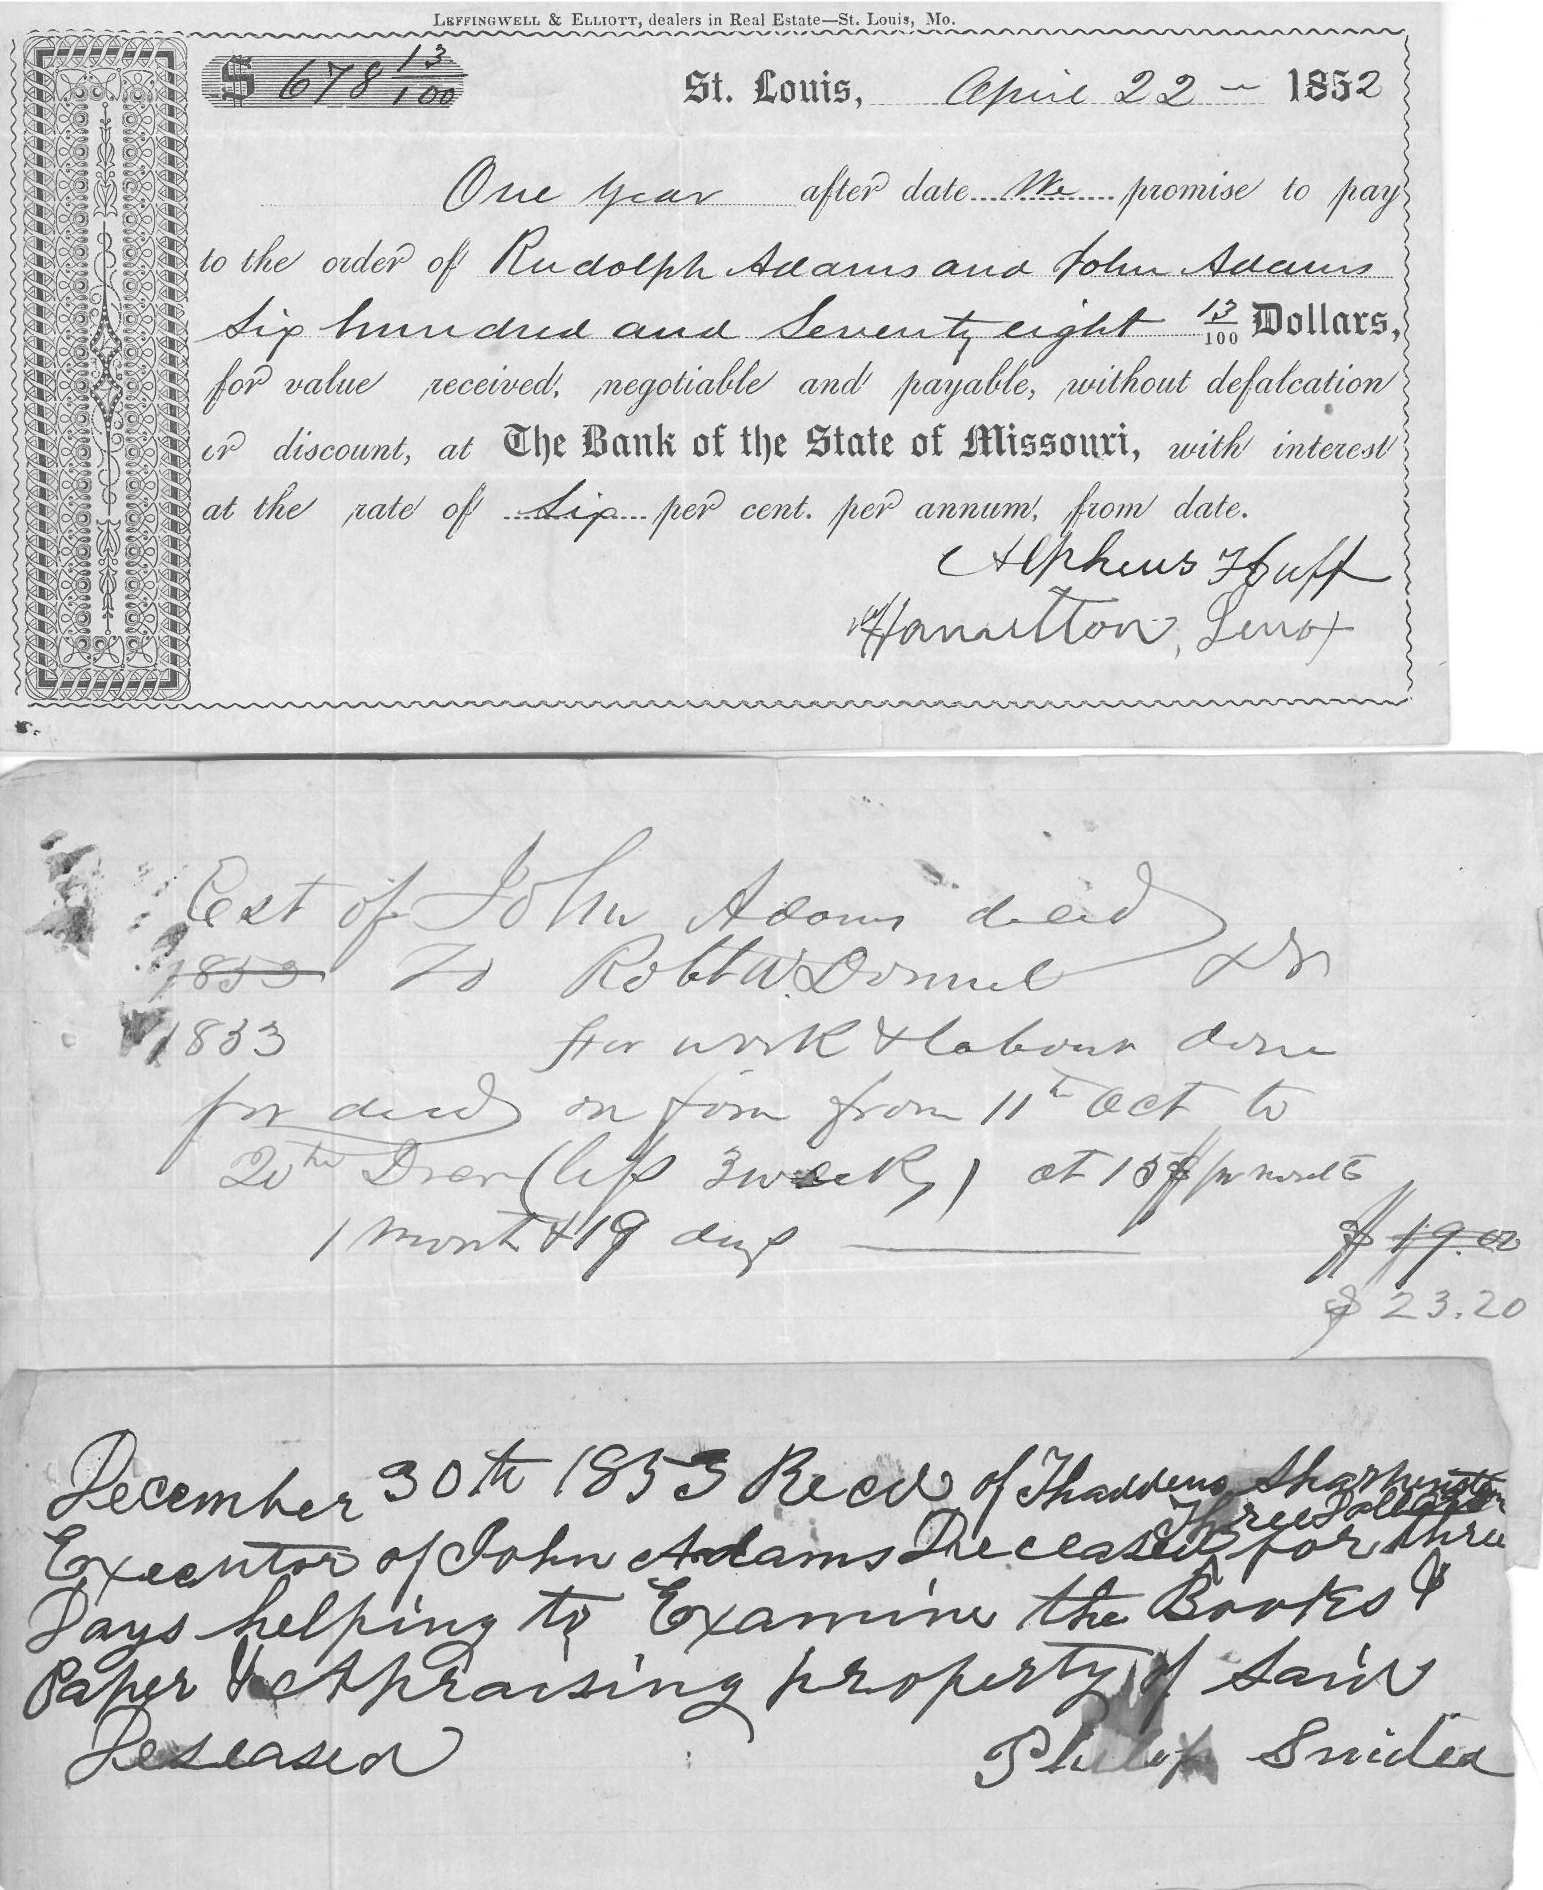 LEFFINGWELL & ELLIOTT, dealers in Real Estate—St. Louis, Mo.
$ 678 13/100 St. Louis, April 22 - 1852
One year after date We promise to pay
to the order of Rudolph Adams and John Adams
Six hundred and Seventy eight 13/100 Dollars,
for value received, negotiable and payable, without defalcation
or discount, at The Bank of the State of Missouri, with interest
at the rate of Six per cent. per annum, from date.
Alpheus Huff
Hamilton Lenox
Est of John Adams decd
1853 To Robt W. Donnel Dr
1853 for work & labour done
for decd on farm from 11th Oct to
20th Decr (less 3 weeks) at 15$ pr month
1 month & 19 days $ 19.00
$ 23.20
December 30th 1853 Recd of Thaddeus
Three Dollars
Executor of John Adams Deceased for three
Days helping to Examine the Books &
Paper & Apraising property of Said
Deseased Philip Snider